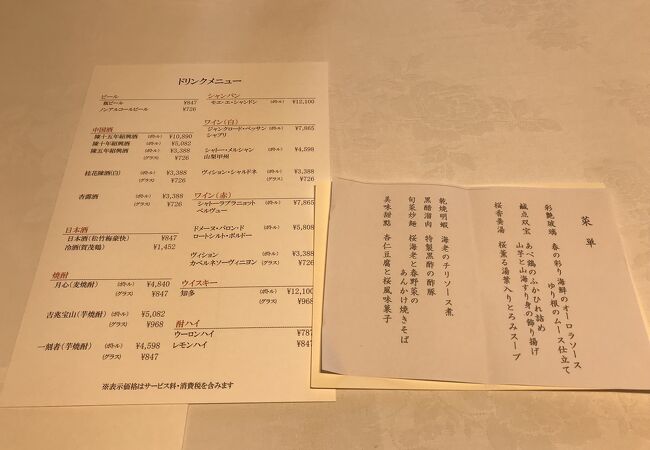 ドリンクメニュー
ビール
瓶ビール ¥847
ノンアルコールビール ¥726
中国酒
陳十五年紹興酒 (ボトル) ¥10,890
陳十年紹興酒 (ボトル) ¥5,082
陳五年紹興酒 (ボトル) ¥3,388
(グラス) ¥726
桂花陳酒(白) (ボトル) ¥3,388
(グラス) ¥726
杏露酒 (ボトル) ¥3,388
(グラス) ¥726
日本酒
日本酒(松竹梅豪快) ¥847
冷酒(賀茂鶴) ¥1,452
焼酎
月心(麦焼酎) (ボトル) ¥4,840
(グラス) ¥847
吉兆宝山(芋焼酎) (ボトル) ¥5,082
(グラス) ¥968
一刻者(芋焼酎) (ボトル) ¥4,598
(グラス) ¥847
シャンパン
モエ・エ・シャンドン (ボトル) ¥12,100
ワイン(白)
ジャンクロード・ベッサン (ボトル) ¥7,865
シャブリ
シャトー・メルシャン (ボトル) ¥4,598
山梨甲州 (グラス) ¥726
ヴィション・シャルドネ (ボトル) ¥3,388
(グラス) ¥726
ワイン(赤)
シャトーラプラニョット (ボトル) ¥7,865
ベルヴュー
ドメーヌ・バロン・ド (ボトル) ¥5,808
ロートシルト・ボルドー
ヴィション (ボトル) ¥3,388
カベルネソーヴィニヨン (グラス) ¥726
ウイスキー
知多 (ボトル) ¥12,100
(グラス) ¥968
酎ハイ
ウーロンハイ ¥787
レモンハイ ¥847
※表示価格はサービス料・消費税を含みます
菜単
彩艶玻璃 春の彩り海鮮のオーロラソース
ゆり根のムース仕立て
鹹点双宝 あべ鶏のふかひれ詰め
山芋と山海すり身の飾り揚げ
桜香羹湯 桜薫る湯葉入りとろみスープ
乾焼明蝦 海老のチリソース煮
黒醋溜肉 特製黒酢の酢豚
旬菜炒麺 桜海老と春野菜の
あんかけ焼きそば
美味甜點 杏仁豆腐と桜風味菓子